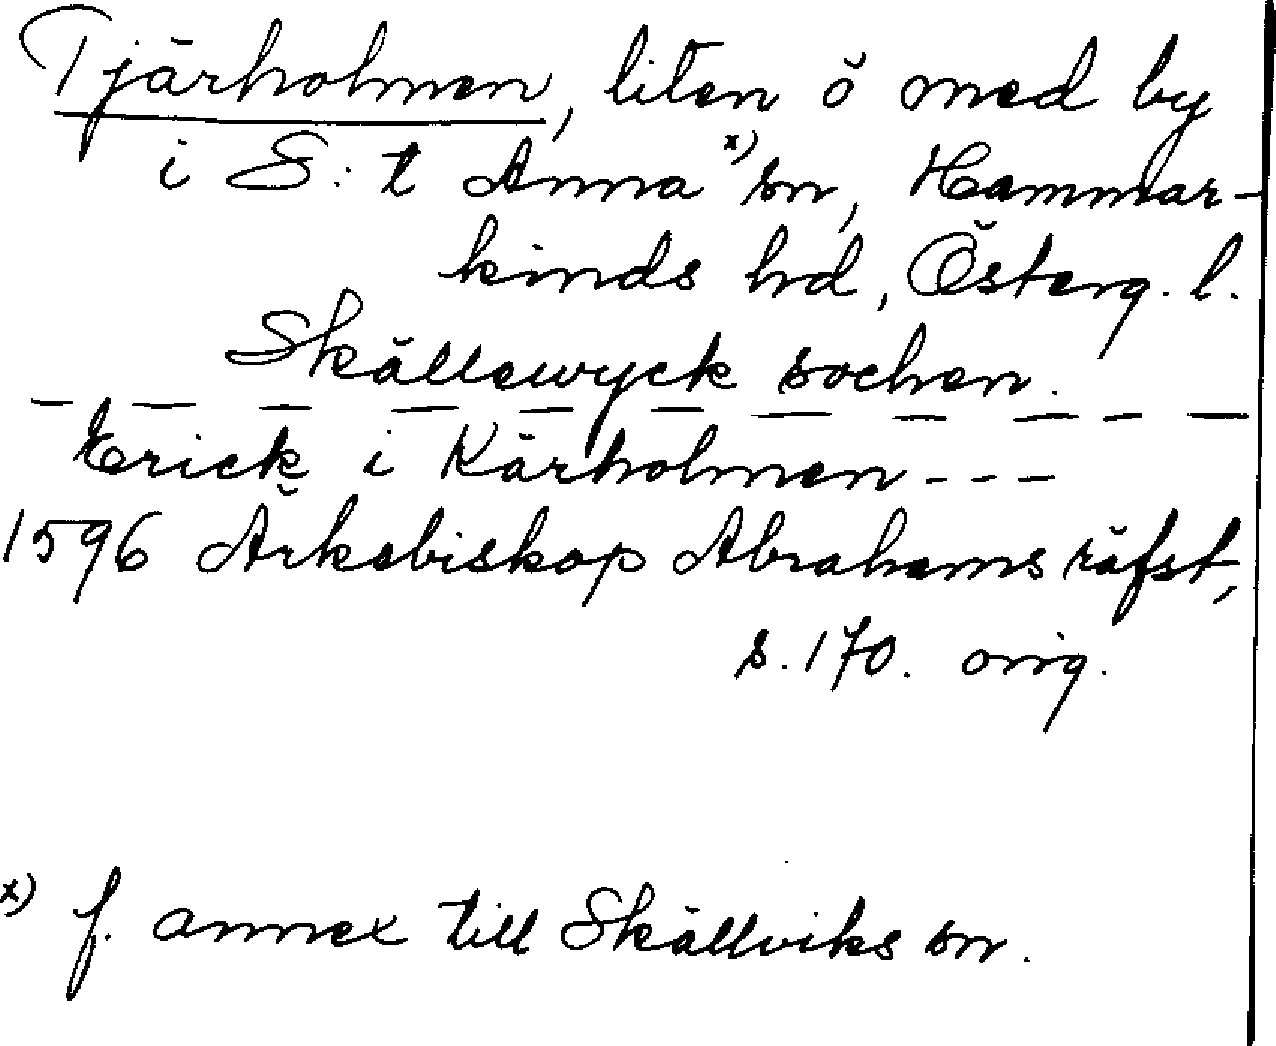 Tjärholmen, liten ö med by
i S:t Anna x) sn, Hammar-
kinds hd, Österg. l.
Skällewyck sochen.
— — — — — — — — — — —
Erick i Kärholmen - - -
1596 Ärkebiskop Abrahams räfst,
s. 170. orig.
x) f. annex till Skällviks sn.